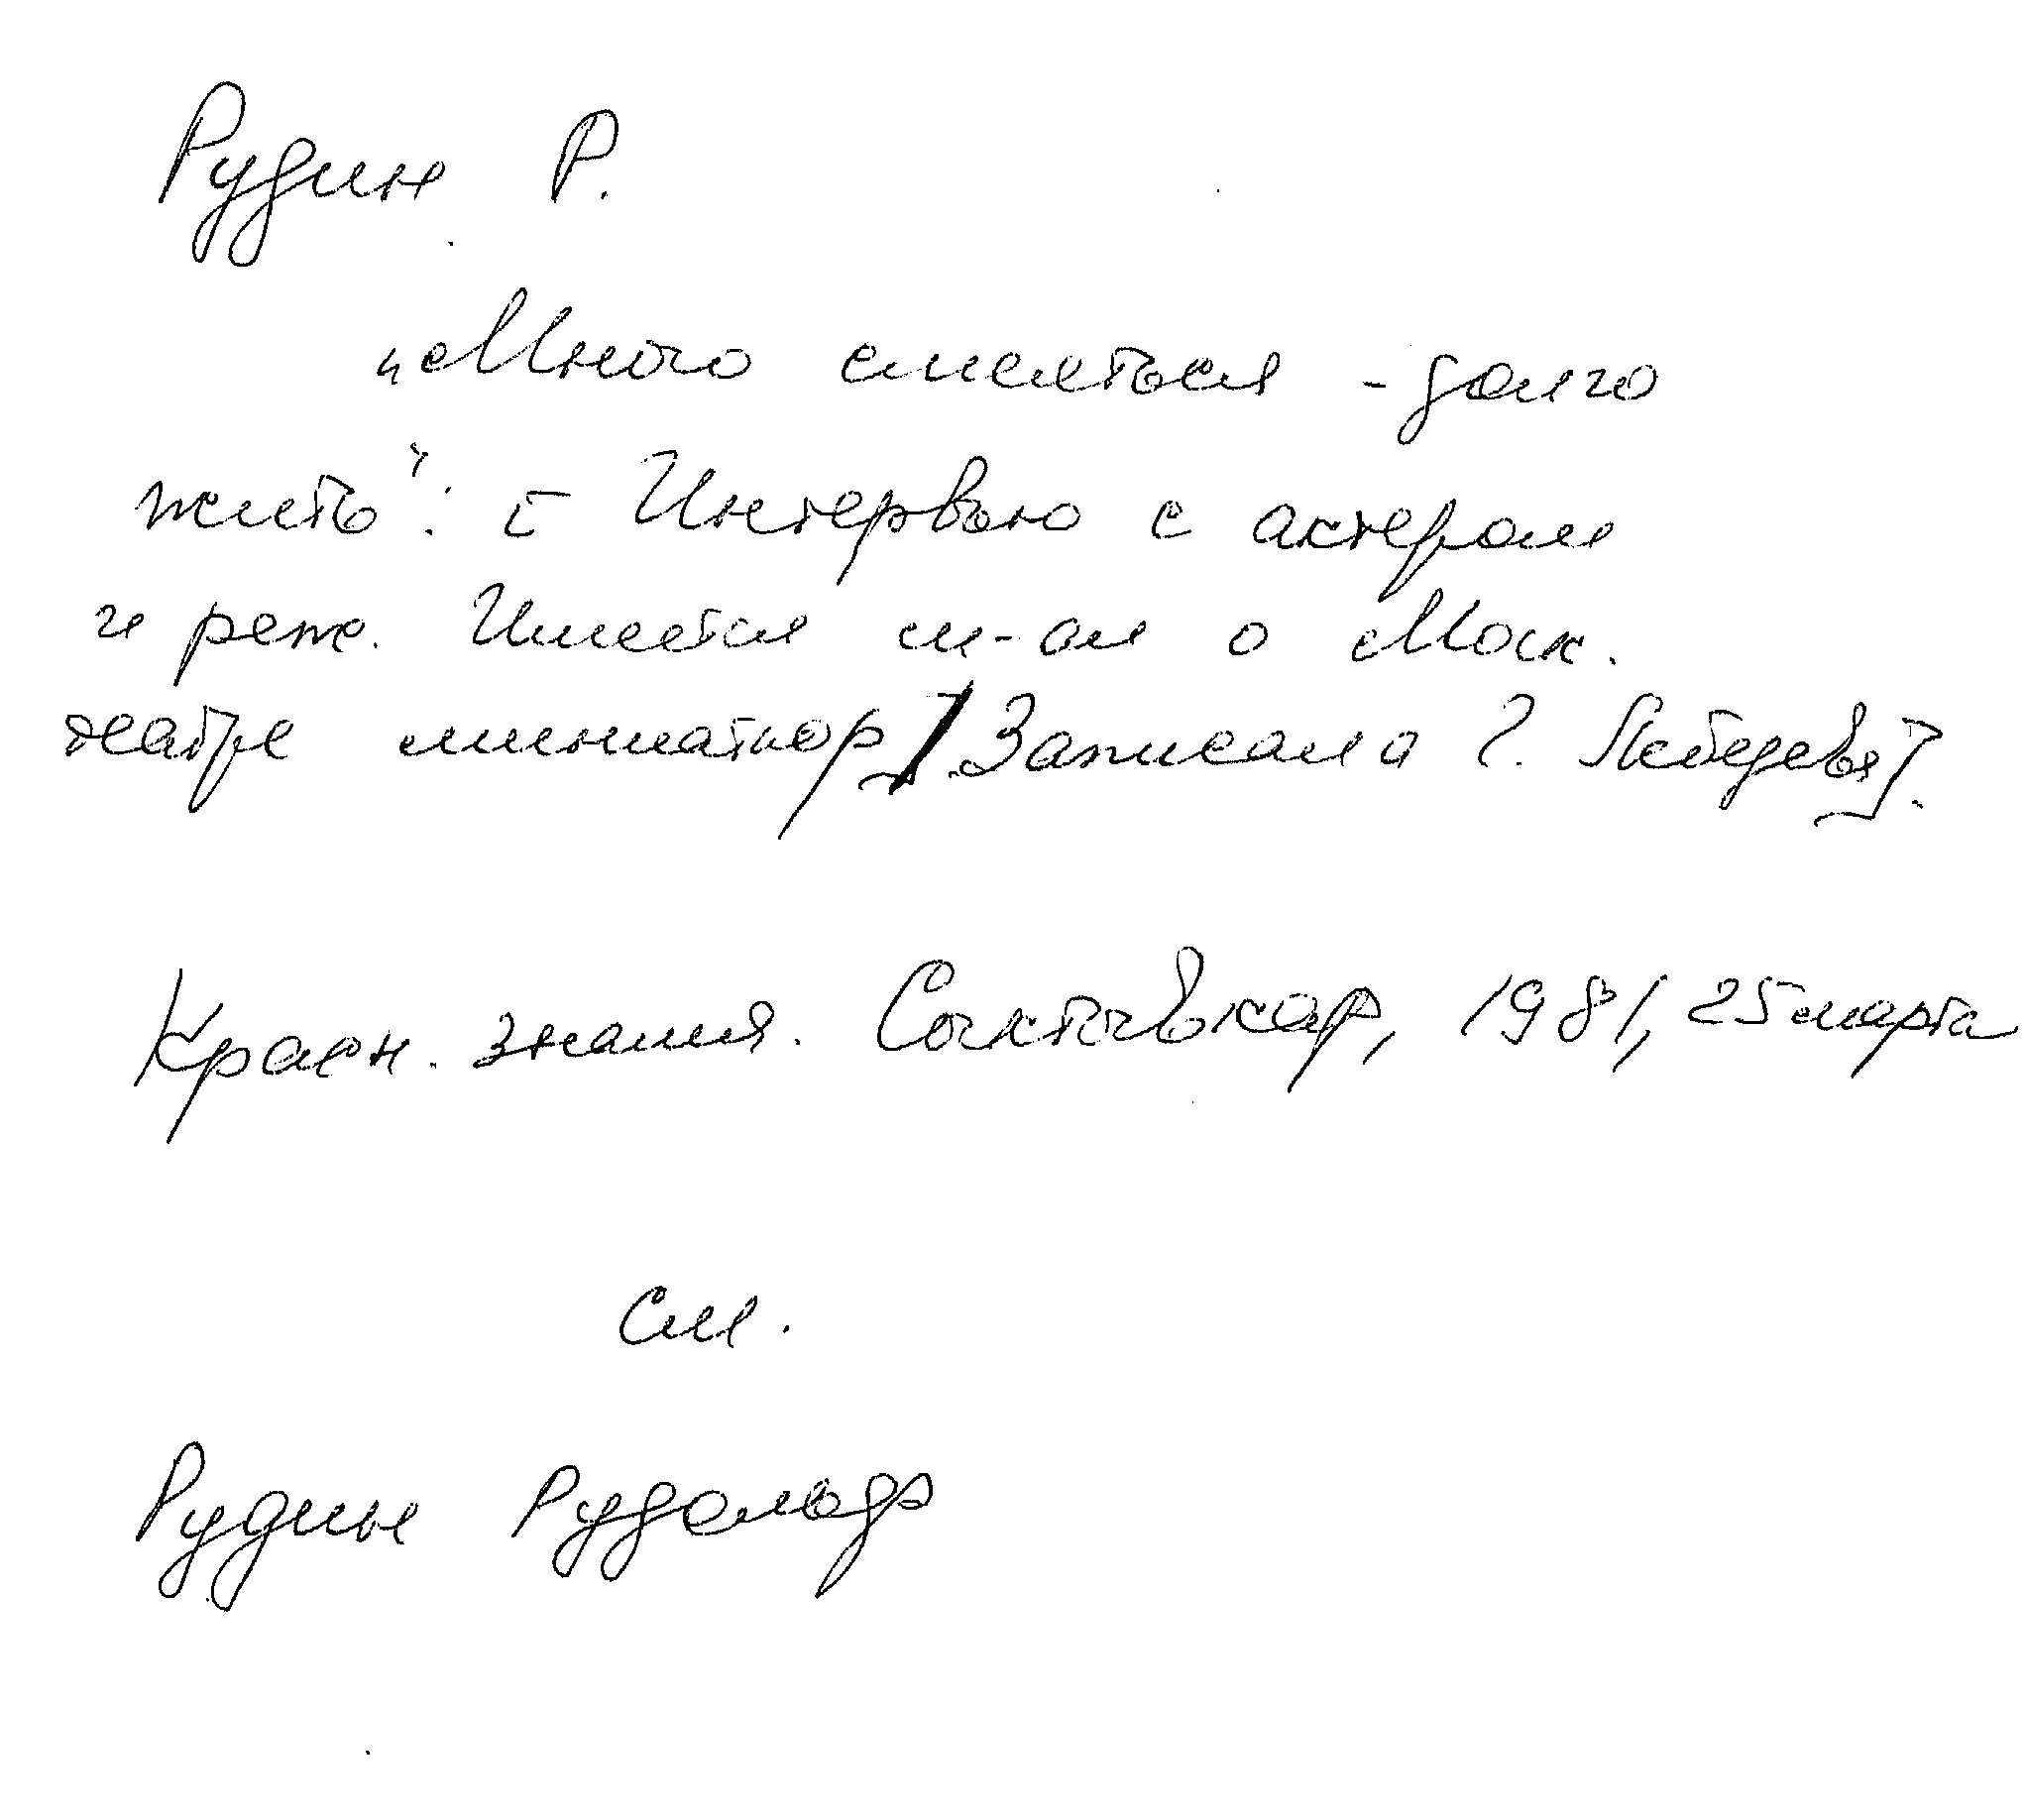 Рудин Р.
„Много смеяться - долго
жить": [ Интервью с актером
и реж. Имеется м-ал о Моск.
театре миниатюр / Записала Г. Лебедева].
Красн. знамя. Сыктывкар, 1981, 25 марта
См.
Рудин Рудольф